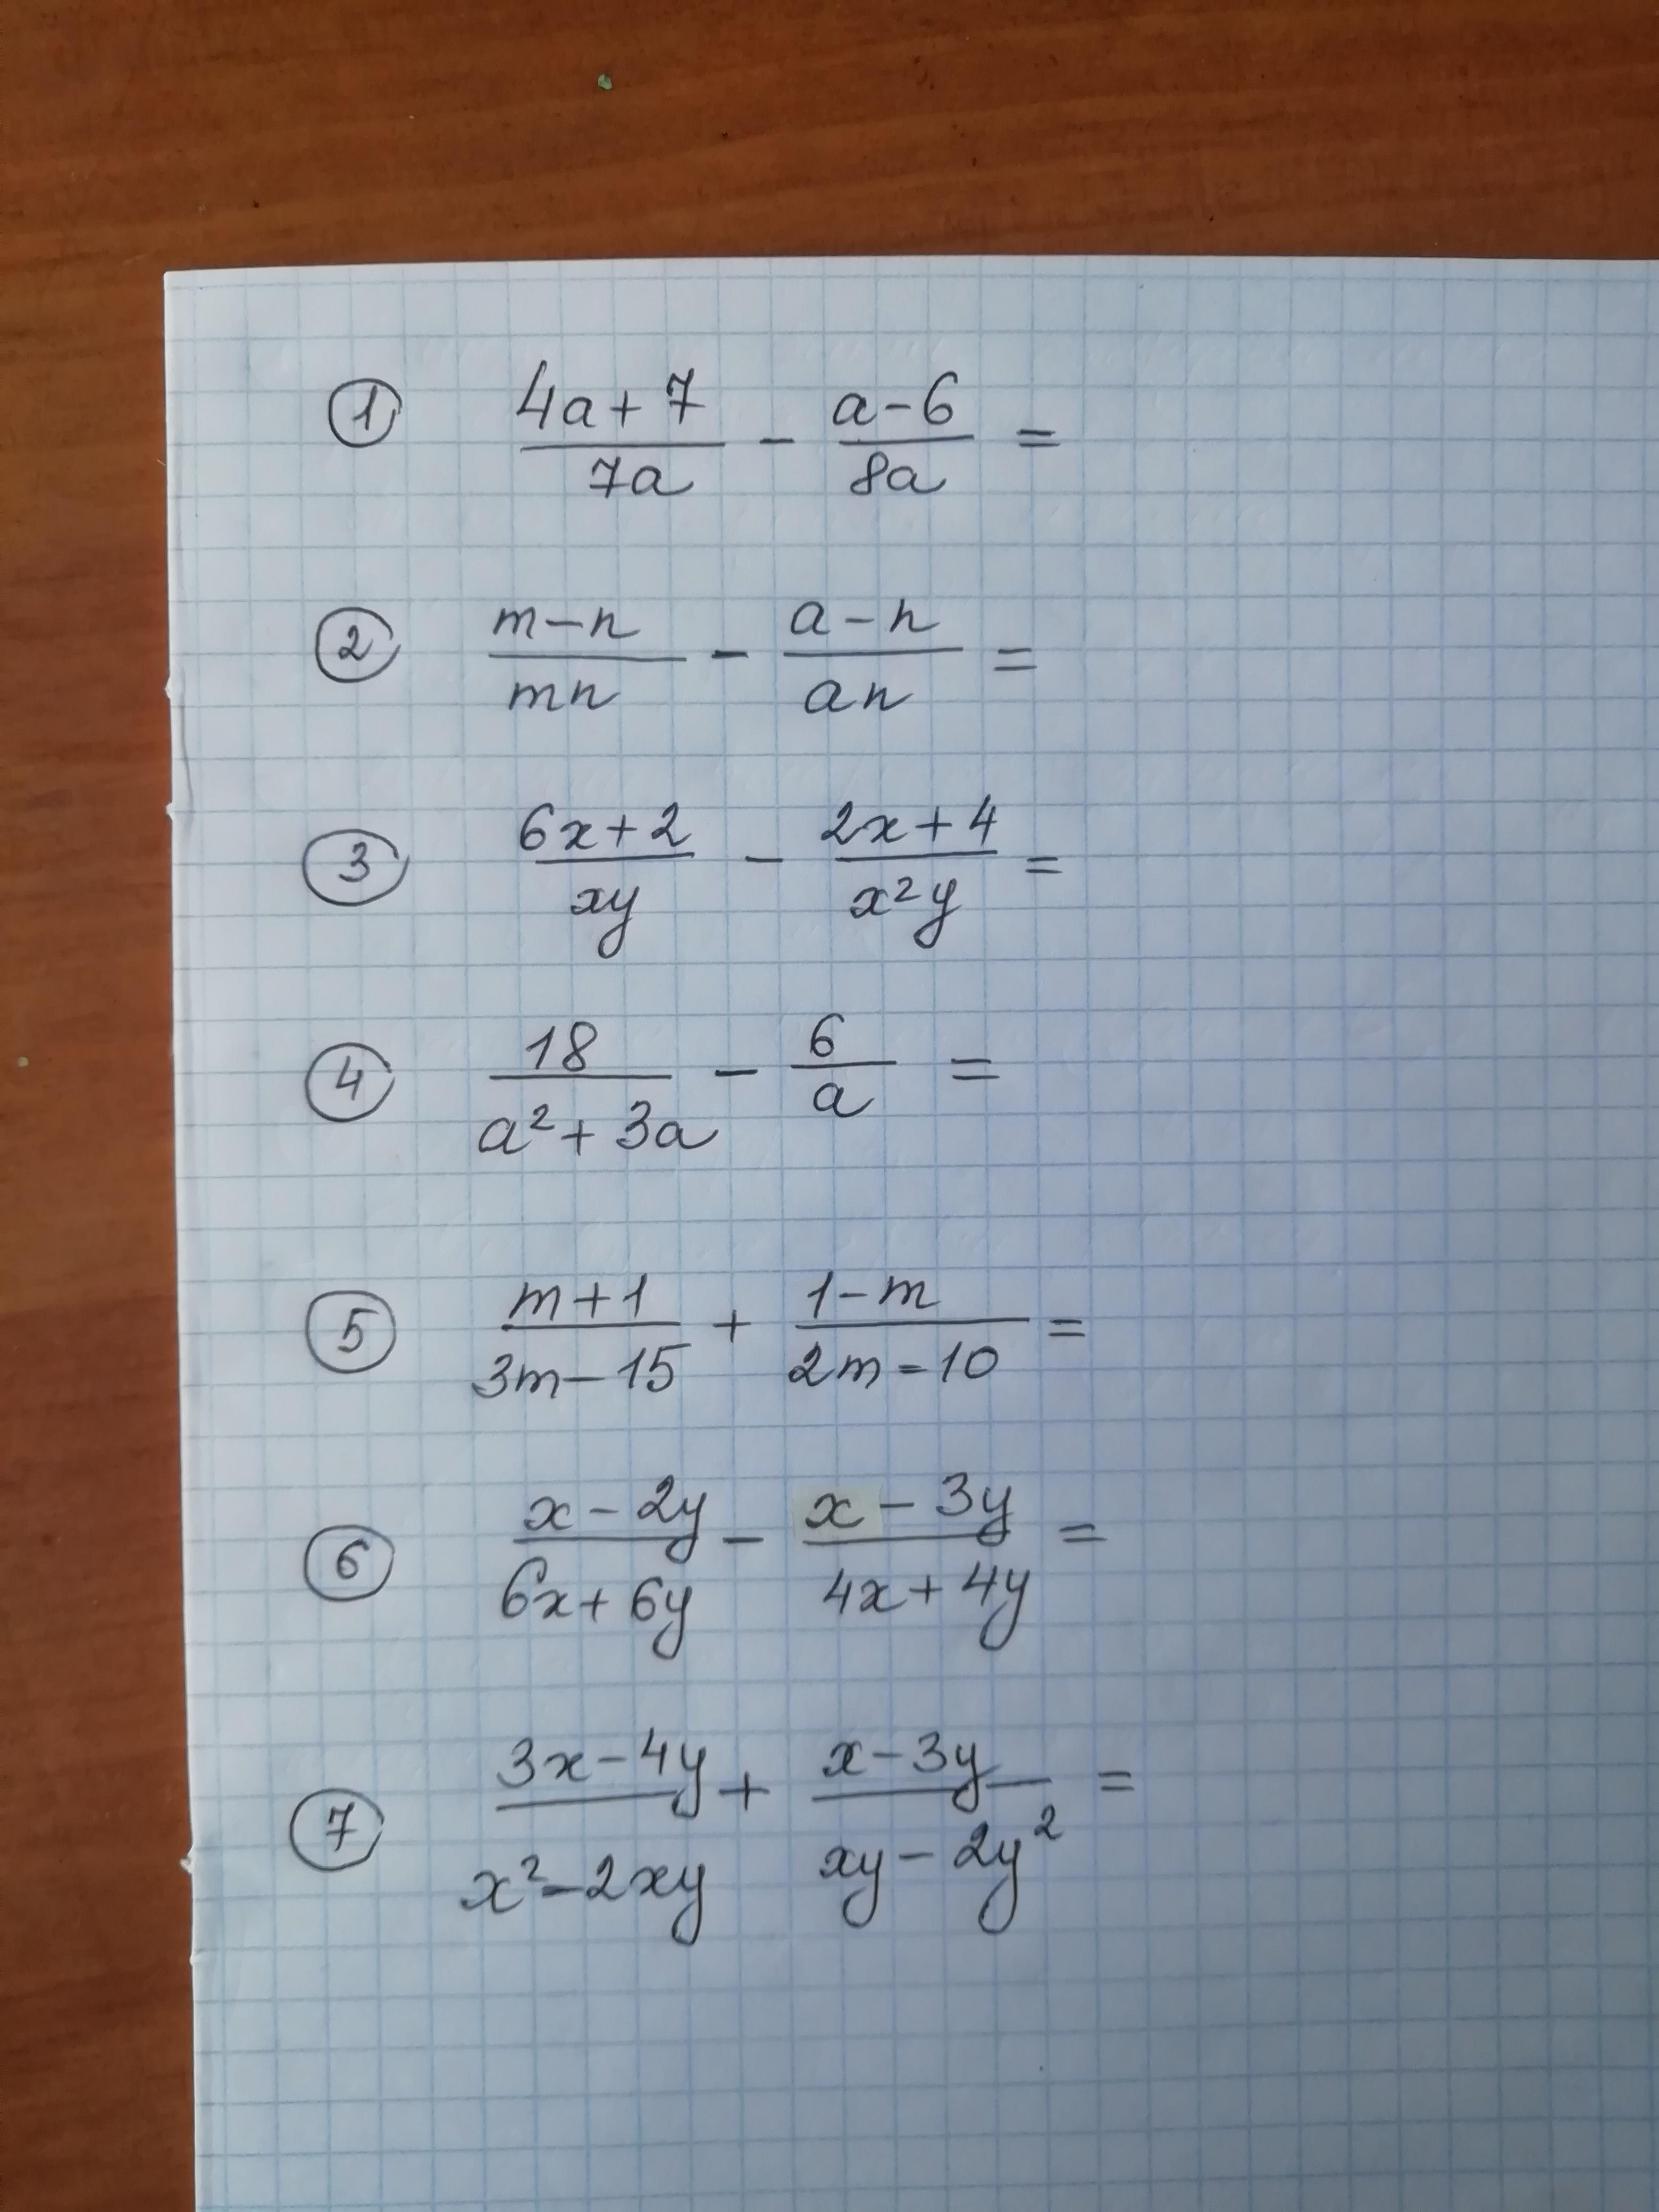 ① (4a+7)/(7a) - (a-6)/(8a) =
② (m-n)/(mn) - (a-n)/(an) =
③ (6x+2)/(xy) - (2x+4)/(x²y) =
④ 18/(a²+3a) - 6/a =
⑤ (m+1)/(3m-15) + (1-m)/(2m-10) =
⑥ (x-2y)/(6x+6y) - (x-3y)/(4x+4y) =
⑦ (3x-4y)/(x²-2xy) + (x-3y)/(xy-2y²) =